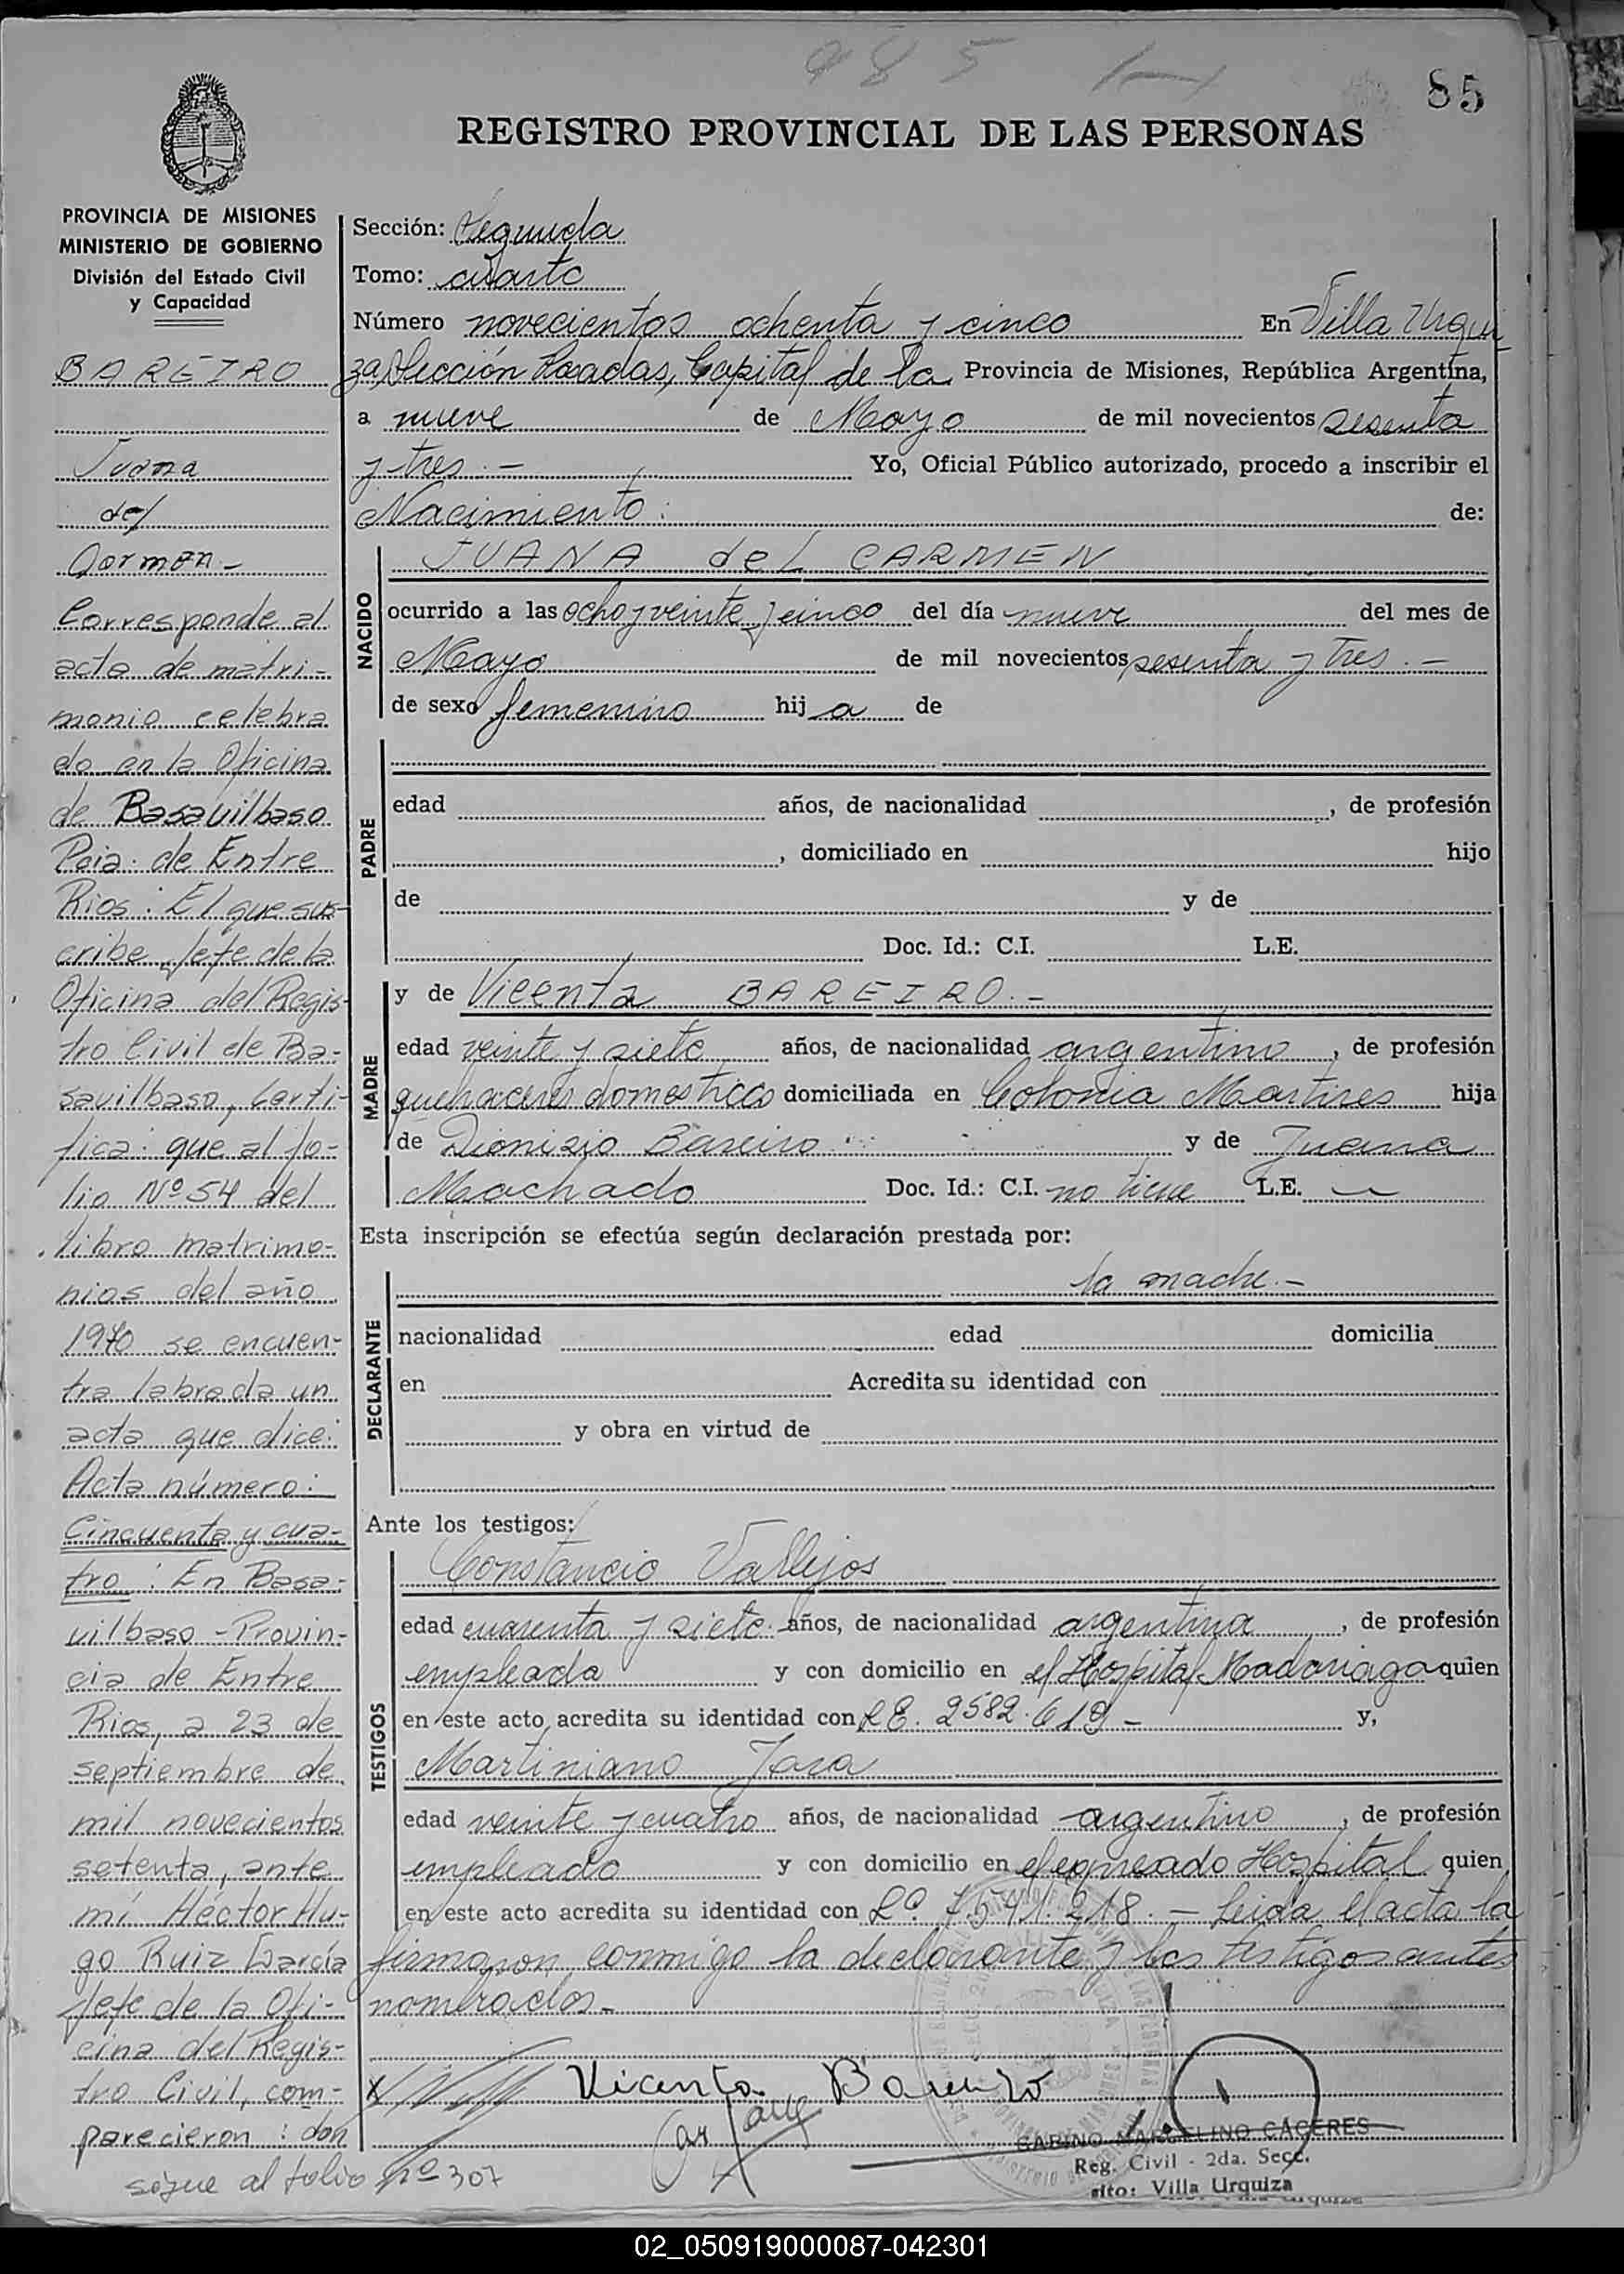 985
85
REGISTRO PROVINCIAL DE LAS PERSONAS
PROVINCIA DE MISIONES
MINISTERIO DE GOBIERNO
División del Estado Civil
y Capacidad
BAREIRO
Juana
del
Carmen -
Corresponde al
acta de matri-
monio celebra
do en la Oficina
de Basavilbaso
Pcia. de Entre
Rios: El que sus-
cribe Jefe de la
Oficina del Regis-
tro Civil de Ba-
savilbaso, Certi-
fica: que al fo-
lio Nº 54 del
libro matrimo-
nios del año
1970 se encuen-
tra labrada un
acta que dice:
Acta número:
Cincuenta y cua-
tro: En Basa-
vilbaso - Provin-
cia de Entre
Rios, a 23 de
septiembre de
mil novecientos
setenta, ante
mí Héctor Hu-
go Ruiz García
Jefe de la Ofi-
cina del Regis-
tro Civil, com-
parecieron: don
sigue al folio nº 307
Sección: Segunda
Tomo: cuarto
Número novecientos ochenta y cinco En Villa Urqui
za, Sección Posadas, Capital de la Provincia de Misiones, República Argentina,
a nueve de Mayo de mil novecientos sesenta
y tres.- Yo, Oficial Público autorizado, procedo a inscribir el
Nacimiento: de:
NACIDO
JUANA del CARMEN
ocurrido a las ocho y veinte y cinco del día nueve del mes de
Mayo de mil novecientos sesenta y tres.-
de sexo femenino hij a de
PADRE
edad años, de nacionalidad , de profesión
, domiciliado en hijo
de y de
Doc. Id.: C.I. L.E.
MADRE
y de Vicenta BAREIRO.-
edad veinte y siete años, de nacionalidad argentino, de profesión
quehaceres domesticos domiciliada en Colonia Martires hija
de Dionizio Bareiro y de Juana
Machado Doc. Id.: C.I. no tiene L.E. —
Esta inscripción se efectúa según declaración prestada por:
DECLARANTE
la madre.-
nacionalidad edad domicilia
en Acredita su identidad con
y obra en virtud de
Ante los testigos:
TESTIGOS
Constancio Vallejos
edad cuarenta y siete años, de nacionalidad argentina, de profesión
empleada y con domicilio en el Hospital Madariaga quien
en este acto acredita su identidad con L E. 2582.619 - y,
Martiniano Jara
edad veinte y cuatro años, de nacionalidad argentino, de profesión
empleado y con domicilio en el expresado Hospital quien
en este acto acredita su identidad con Lº. 7.541.218. - Leida el acta la
firmaron conmigo la declarante y los testigos antes
nombrados.-
Vicenta Bareiro
GABINO MARCELINO CACERES
Reg. Civil - 2da. Secc.
Villa Urquiza
02_050919000087-042301